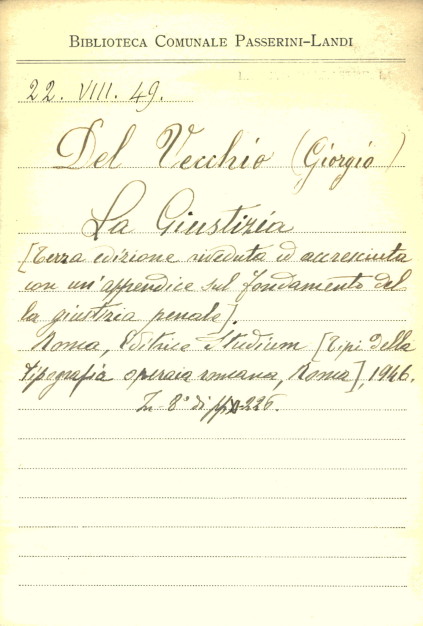 BIBLIOTECA COMUNALE PASSERINI-LANDI
22. VIII. 49.
Del Vecchio (Giorgio)
La Giustizia
[Terza edizione riveduta ed accresciuta
con un'appendice sul fondamento del
la giustizia penale].
Roma, Editrice Studium [Tipi della
tipografia operaia romana, Roma], 1946.
In-8° di pp. 226.